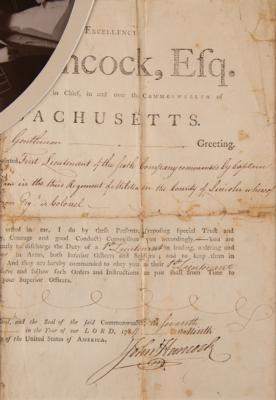 EXCELLENCY
ncock, Esq.
in Chief, in and over the COMMONWEALTH of
SACHUSETTS.
Gentleman Greeting.
First Lieutenant of the sixth Company commanded by Captain
in the third Regiment of Militia in the County of Lincoln whereof
Esqr. is Colonel
vested in me, I do by these Presents, (reposing special Trust and
ty, Courage and good Conduct) Commission you accordingly.—You are
to discharge the Duty of a 1st. Lieutenant in leading, ordering and
in Arms, both inferior Officers and Soldiers; and to keep them in
And they are hereby commanded to obey you as their 1st. Lieutenant
and follow such Orders and Instructions as you shall from Time to
your superior Officers.
and the Seal of the said Commonwealth, the seventh
in the Year of our LORD, 178
of the United States of AMERICA,
John Hancock